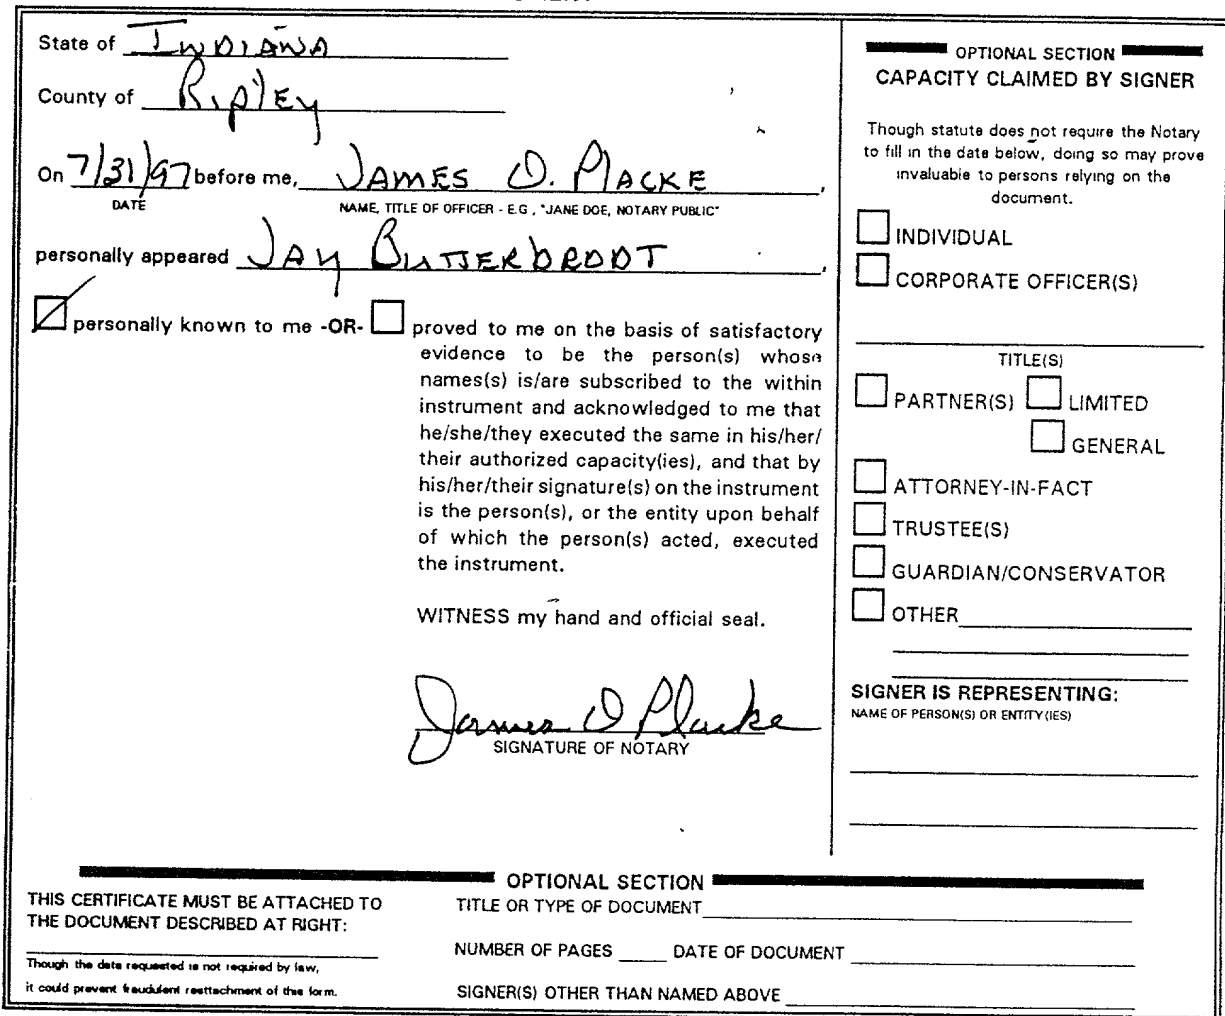 State of INDIANA
County of Ripley
On 7/31/97 before me, JAMES D. PLACKE,
DATE
NAME, TITLE OF OFFICER - E.G., "JANE DOE, NOTARY PUBLIC"
personally appeared JAY BUTTERBRODT,
personally known to me -OR- proved to me on the basis of satisfactory
evidence to be the person(s) whose
names(s) is/are subscribed to the within
instrument and acknowledged to me that
he/she/they executed the same in his/her/
their authorized capacity(ies), and that by
his/her/their signature(s) on the instrument
is the person(s), or the entity upon behalf
of which the person(s) acted, executed
the instrument.
WITNESS my hand and official seal.
James D Placke
SIGNATURE OF NOTARY
OPTIONAL SECTION
CAPACITY CLAIMED BY SIGNER
Though statute does not require the Notary
to fill in the date below, doing so may prove
invaluable to persons relying on the
document.
INDIVIDUAL
CORPORATE OFFICER(S)
TITLE(S)
PARTNER(S) LIMITED
GENERAL
ATTORNEY-IN-FACT
TRUSTEE(S)
GUARDIAN/CONSERVATOR
OTHER
SIGNER IS REPRESENTING:
NAME OF PERSON(S) OR ENTITY(IES)
OPTIONAL SECTION
THIS CERTIFICATE MUST BE ATTACHED TO
THE DOCUMENT DESCRIBED AT RIGHT:
Though the data requested is not required by law,
it could prevent fraudulent reattachment of this form.
TITLE OR TYPE OF DOCUMENT
NUMBER OF PAGES DATE OF DOCUMENT
SIGNER(S) OTHER THAN NAMED ABOVE